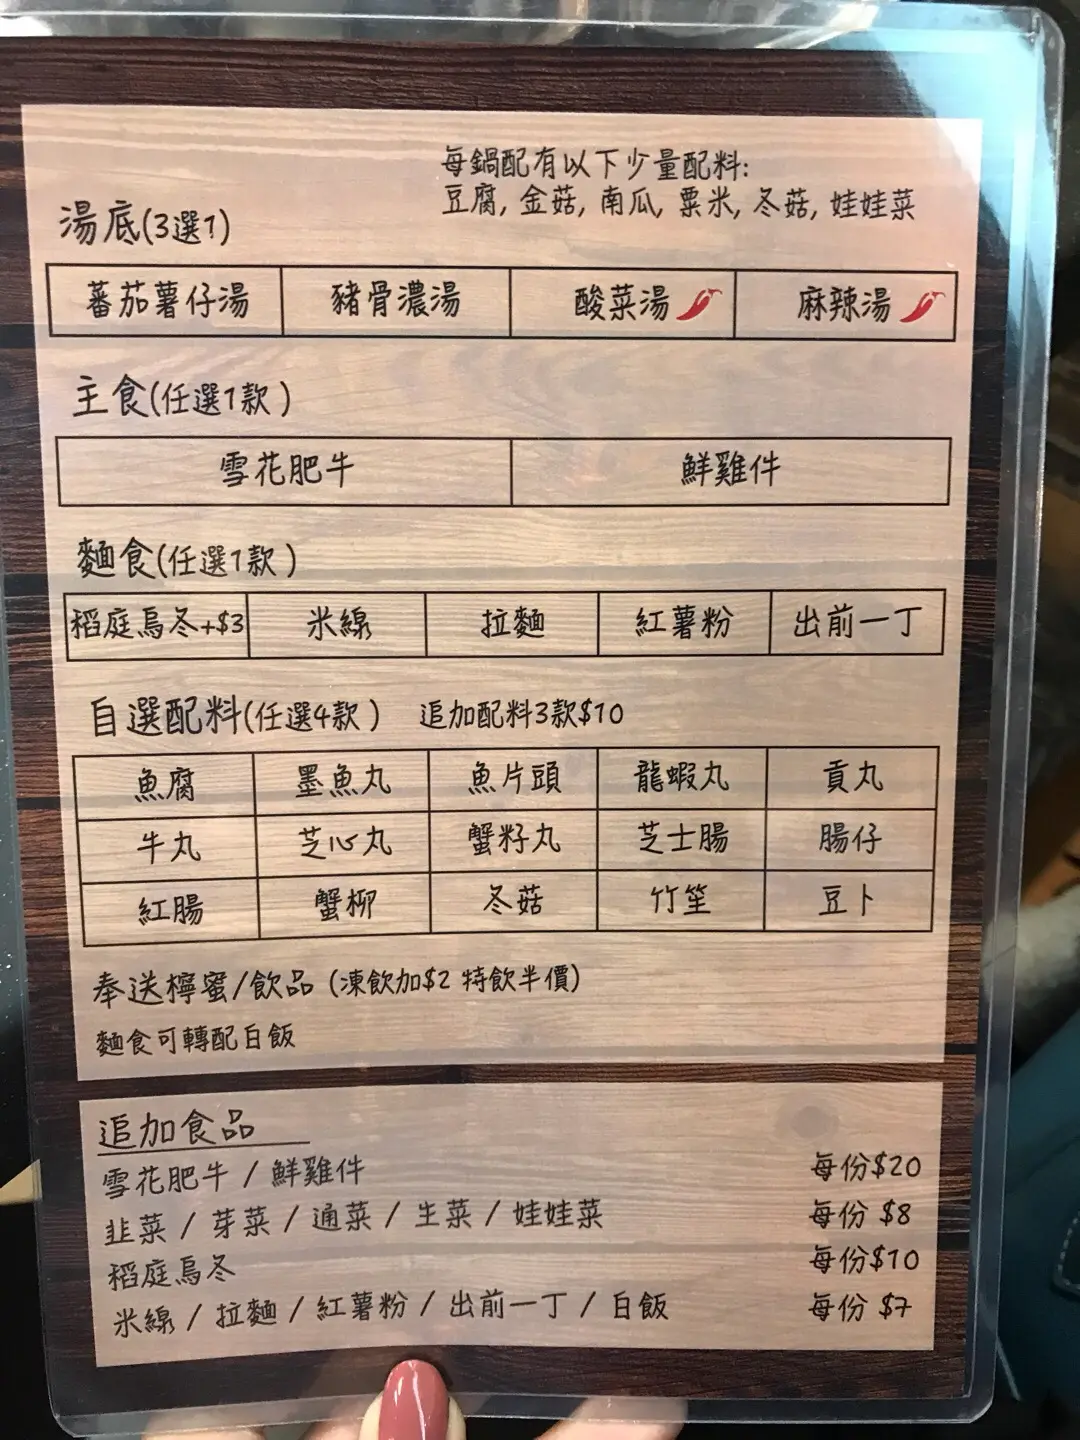 每鍋配有以下少量配料:
豆腐, 金菇, 南瓜, 粟米, 冬菇, 娃娃菜
湯底(3選1)
蕃茄薯仔湯 豬骨濃湯 酸菜湯 麻辣湯
主食(任選1款)
雪花肥牛 鮮雞件
麵食(任選1款)
稻庭烏冬+$3 米線 拉麵 紅薯粉 出前一丁
自選配料(任選4款) 追加配料3款$10
魚腐 墨魚丸 魚片頭 龍蝦丸 貢丸
牛丸 芝心丸 蟹籽丸 芝士腸 腸仔
紅腸 蟹柳 冬菇 竹笙 豆卜
奉送檸蜜/飲品 (凍飲加$2 特飲半價)
麵食可轉配白飯
追加食品
雪花肥牛 / 鮮雞件 每份$20
韭菜 / 芽菜 / 通菜 / 生菜 / 娃娃菜 每份 $8
稻庭烏冬 每份$10
米線 / 拉麵 / 紅薯粉 / 出前一丁 / 白飯 每份 $7